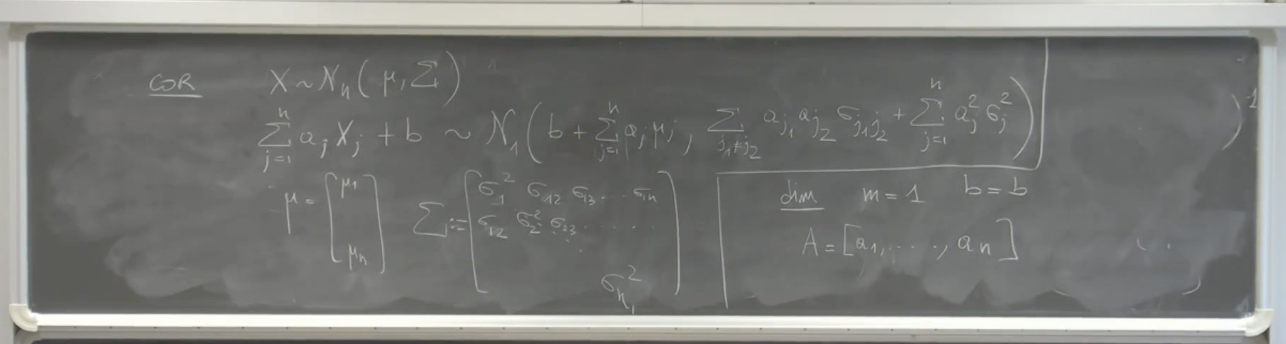 COR X ~ N_n(μ, Σ)
\sum_{j=1}^{n} a_j X_j + b ~ N_1(b + \sum_{j=1}^{n} a_j μ_j, \sum_{j_1≠j_2} a_{j_1} a_{j_2} σ_{j_1 j_2} + \sum_{j=1}^{n} a_j^2 σ_j^2)
)^{-1}
μ = [μ_1
μ_n]
Σ := [σ_1^2 σ_{12} σ_{13} ... σ_{1n}
σ_{12} σ_2^2 σ_{23} .....
σ_n^2]
dim m = 1 b = b
A = [a_1, ..., a_n]